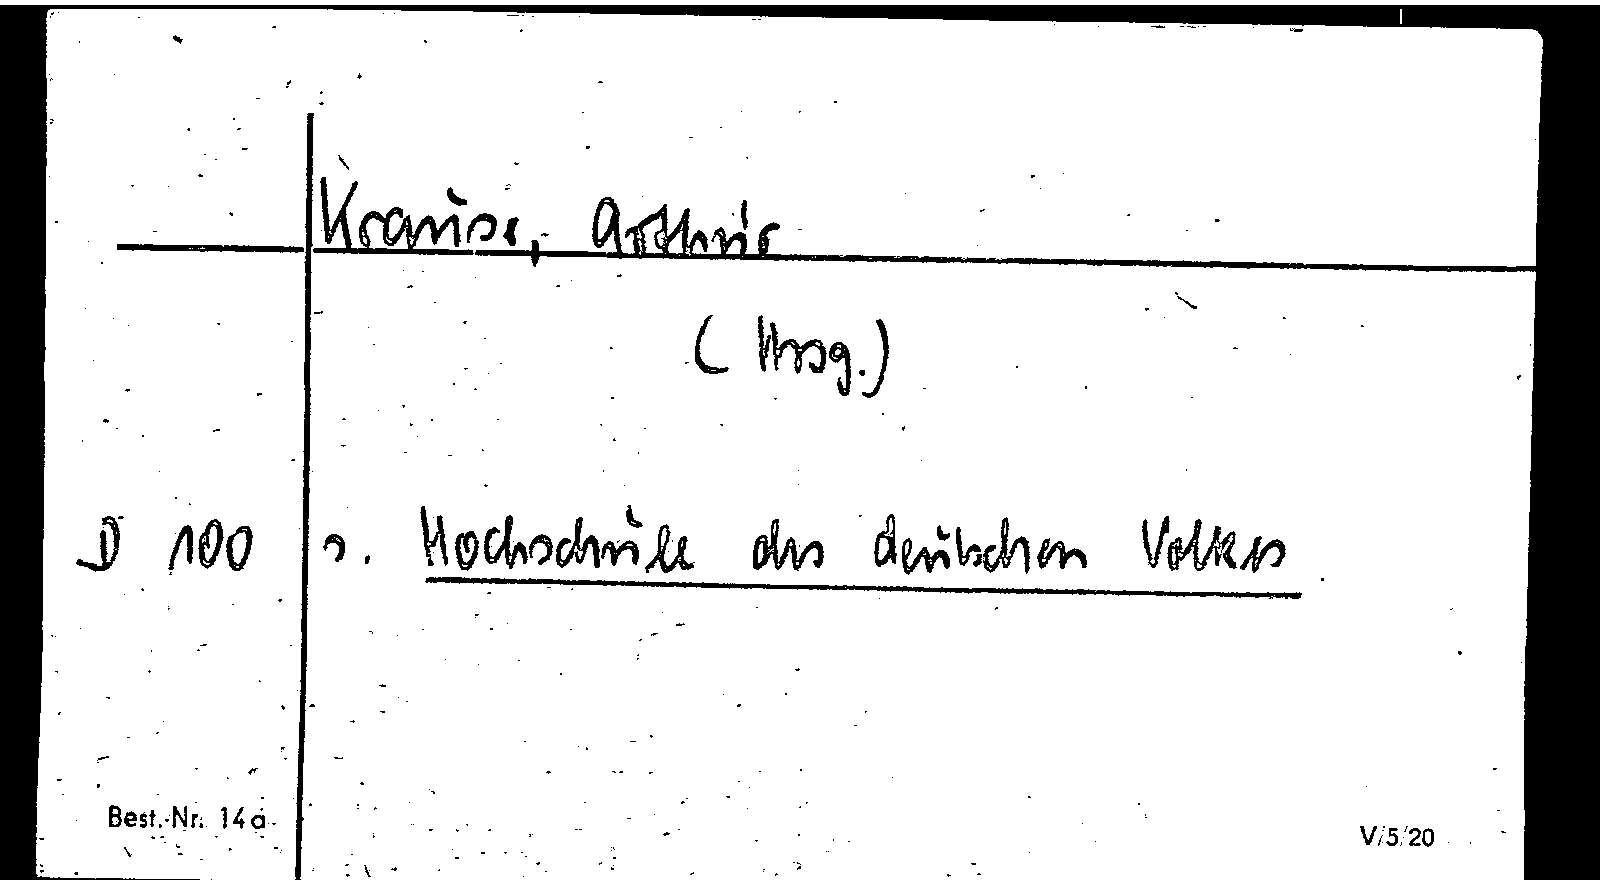 Krause, Arthur
(Hrsg.)
D 100 s. Hochschule des deutschen Volkes
Best.-Nr. 14a
V/5/20